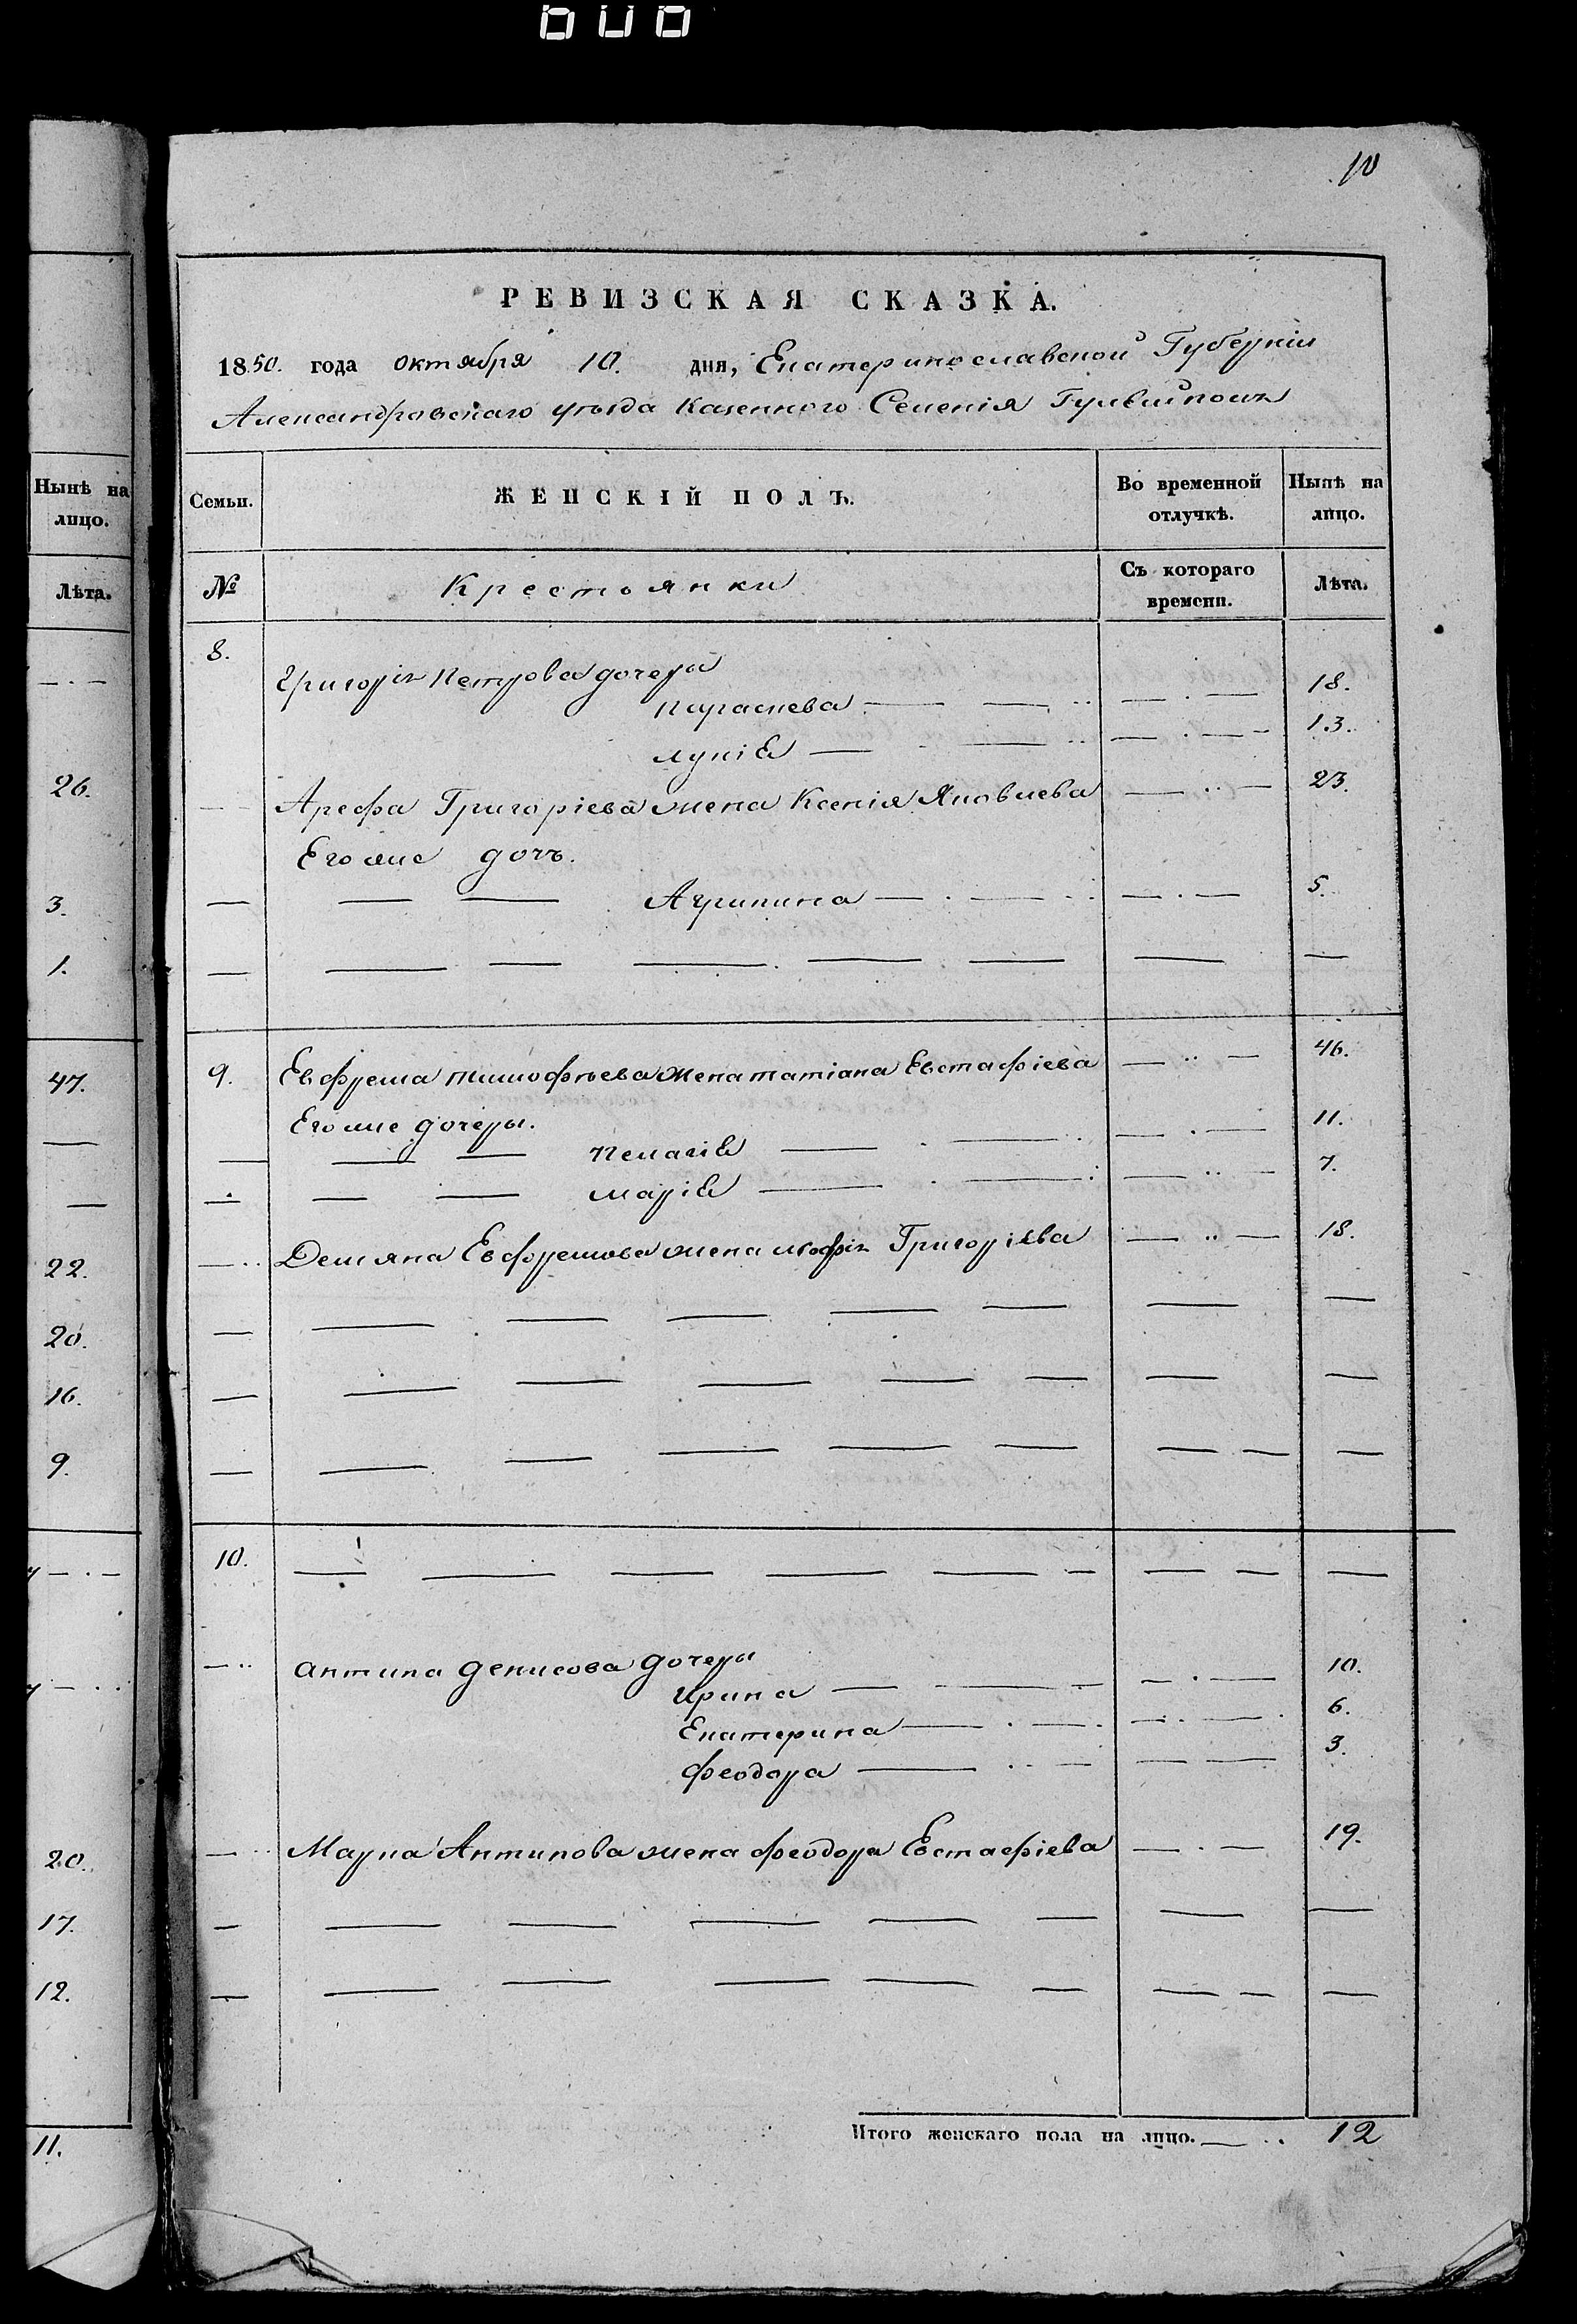 10
РЕВИЗСКАЯ СКАЗКА.
1850. года октября 10. дня, Екатеринославской Губерніи
Александровскаго уѣзда Казенного Селенія Гуляйполь
Нынѣ на лицо.
Лѣта.
Семьи.
ЖЕНСКІЙ ПОЛЪ.
Во временной отлучкѣ.
Нынѣ на лицо.
№
Крестьянки
Съ котораго времени.
Лѣта.
8. Григорія Петрова дочери
Параскева — — 18.
Лукія — — 13.
Арефа Григоріева жена Ксенія Яковлева — 23.
Его же дочь.
— — — Агрипина — — — 5.
— — — — — — — —
9. Евфрема Тимофѣева жена Татіана Евстафіева — 46.
Его же дочери.
— — — Пелагія — — — 11.
— — — Марія — — — 7.
— Демяна Евфремова жена Григоріева — 18.
— — — — — — — —
— — — — — — — —
— — — — — — — —
10. — — — — — — — —
— Антипа Денисова дочери
Ирина — — — 10.
Екатерина — — — 6.
Феодора — — — 3.
— Марка Антипова жена Феодора Евстафіева — 19.
— — — — — — — —
— — — — — — — —
Итого женскаго пола на лицо. — 12
26.
3.
1.
47.
22.
20.
16.
9.
20.
17.
12.
11.